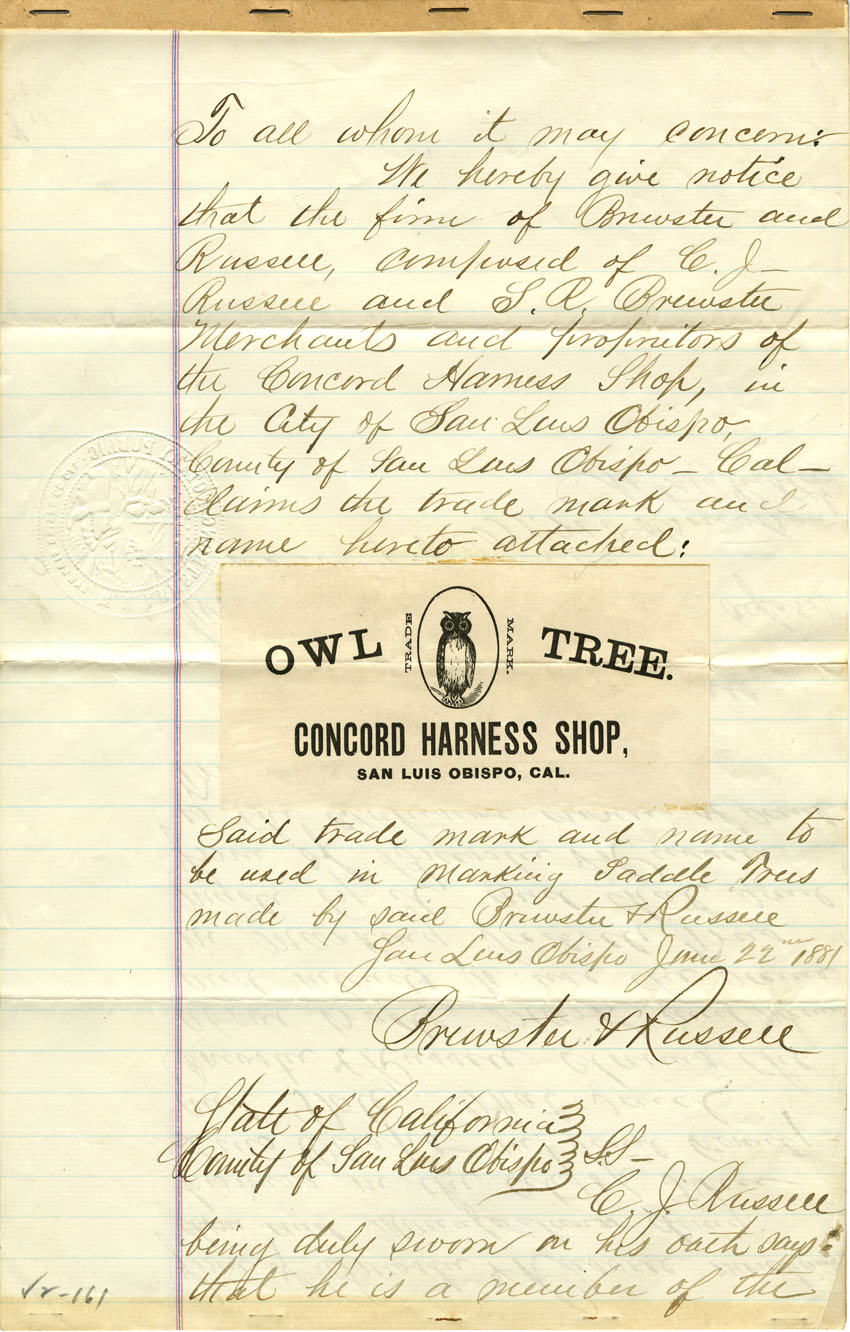 To all whom it may concern:
We hereby give notice
that the firm of Brewster and
Russell, composed of C. J.
Russell and S. R. Brewster
Merchants and proprietors of
the Concord Harness Shop, in
the City of San Luis Obispo,
County of San Luis Obispo – Cal –
Claims the trade mark and
name hereto attached:
OWL TRADE MARK. TREE.
CONCORD HARNESS SHOP,
SAN LUIS OBISPO, CAL.
Said trade mark and name to
be used in marking Saddle Trees
made by said Brewster & Russell
San Luis Obispo June 22nd 1881
Brewster & Russell
State of California
County of San Luis Obispo } S.S –
C. J. Russell
being duly sworn on his oath says:
that he is a member of the